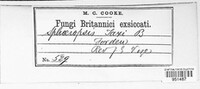 M. C. COOKE.
Fungi Britannici exsiccati.
Sphæropsis Taxi B
Forden
Rev J E Vize
No. 529